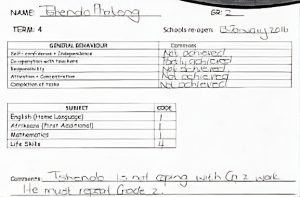 NAME: Tshendo GR: 2
TERM: 4 Schools re-open: January 2016
GENERAL BEHAVIOUR Comments
Self-confidence + Independence Not achieved
Co-operation with teachers Partly achieved
Responsibility Not achieved
Attention + Concentration Not achieved
Completion of tasks Not achieved
SUBJECT CODE
English (Home Language) 1
Afrikaans (First Additional) 1
Mathematics 1
Life Skills 4
Comments: Tshendo is not coping with Gr 2 work.
He must repeat Grade 2.